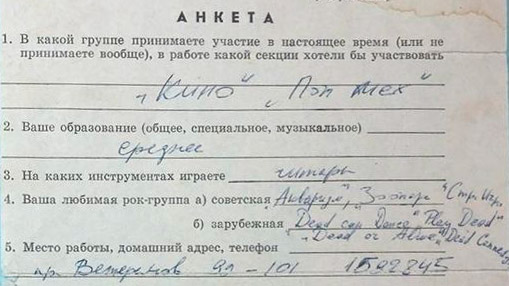 АНКЕТА
1. В какой группе принимаете участие в настоящее время (или не
принимаете вообще), в работе какой секции хотели бы участвовать
„Кино" „Поп мех"
2. Ваше образование (общее, специальное, музыкальное)
среднее
3. На каких инструментах играете гитары
4. Ваша любимая рок-группа а) советская „Аквариум", Зоопарк „Стр. Игр."
б) зарубежная „Dead can Dance" „Play Dead"
„Dead or Alive"
5. Место работы, домашний адрес, телефон
пр. Ветеранов 99-101 1592845